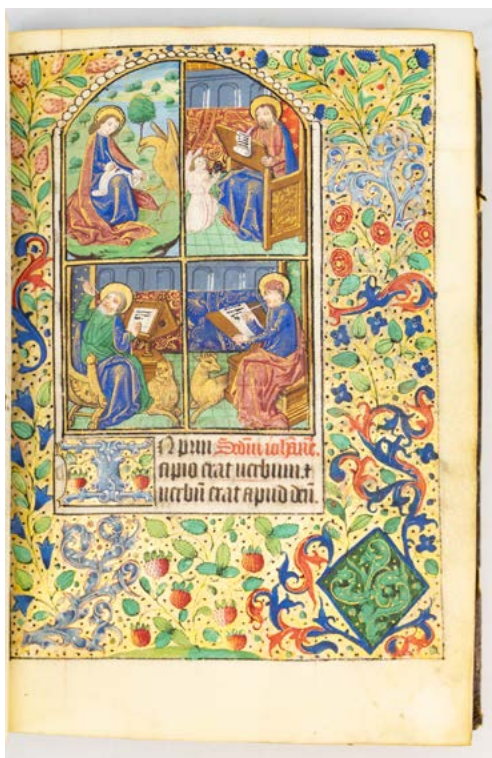 IN prin Scdm iohāne.
cipio erat uerbum. ⁊
uerbū erat apud deū.